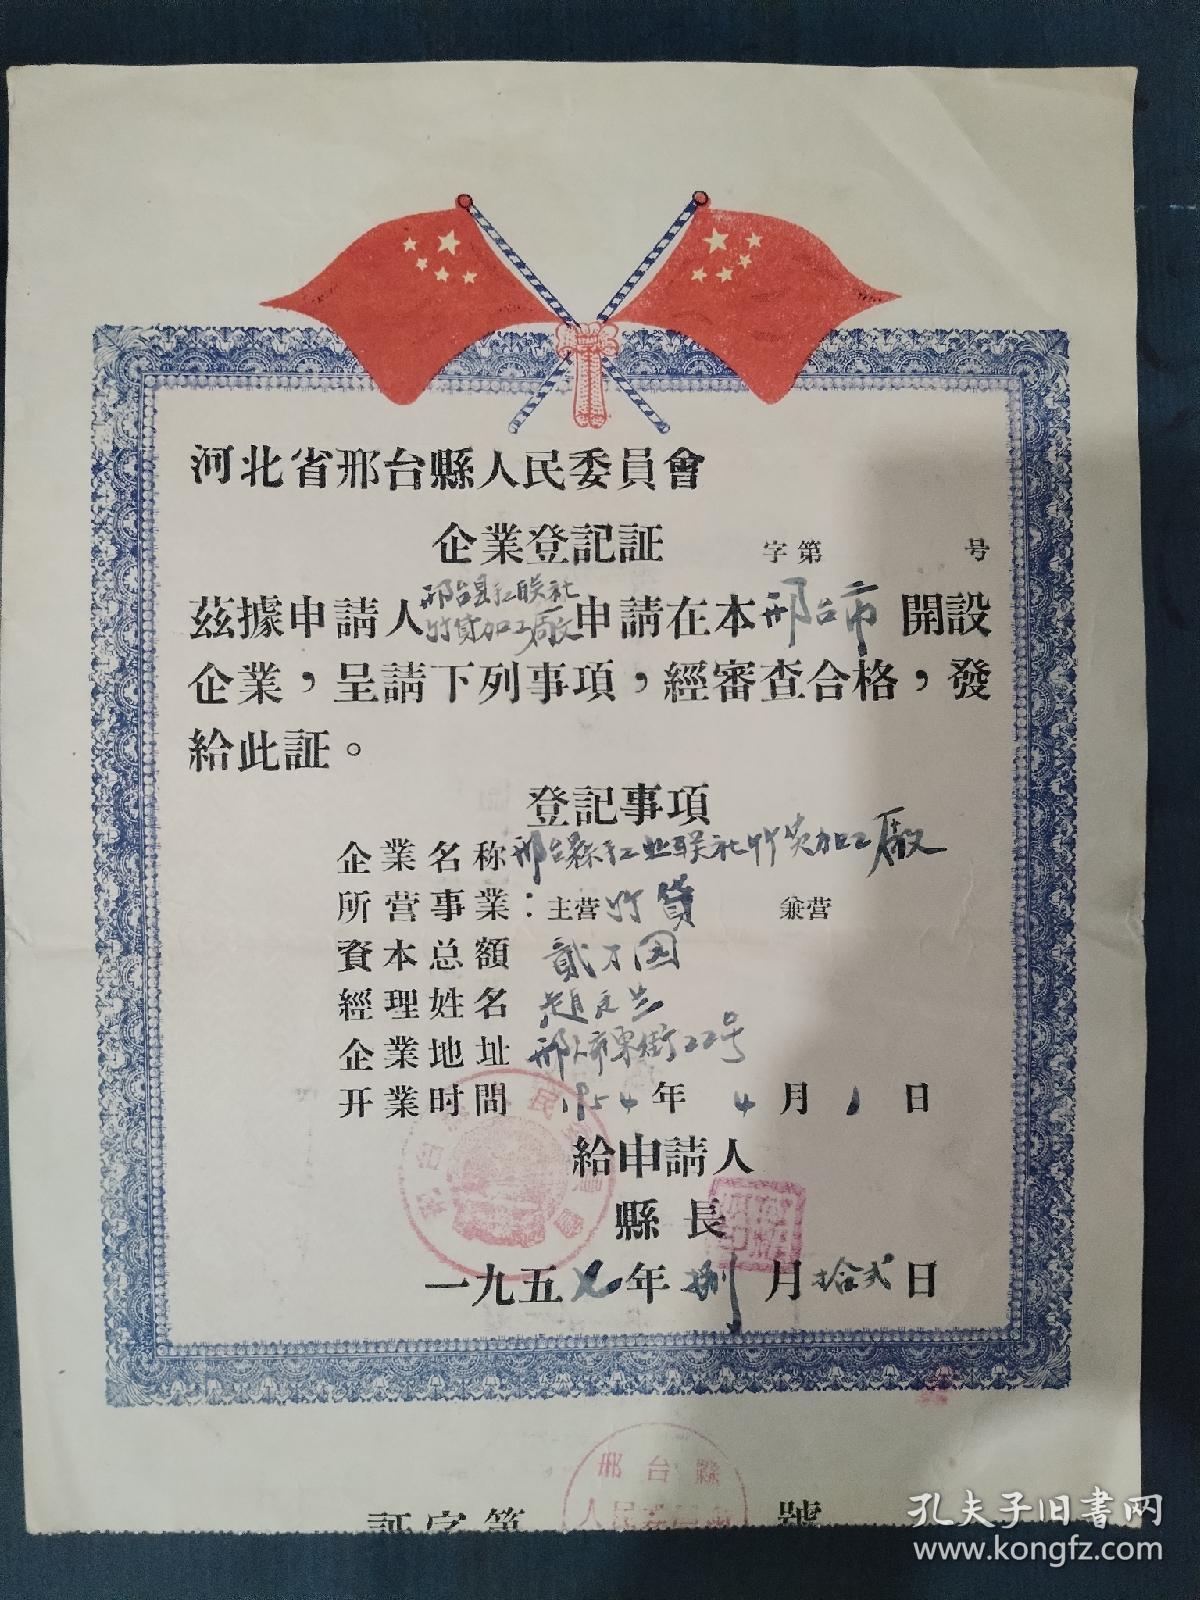 河北省邢台縣人民委員會
企業登記証 字第 号
茲據申請人邢台县工联社竹货加工廠申請在本邢台市開設
企業，呈請下列事項，經審查合格，發
給此証。
登記事項
企業名称 邢台縣工业联社竹货加工廠
所营事業：主营 竹貨 兼营
資本总額 貳万园
經理姓名 趙
企業地址 邢台市東街22号
开業时間 1954年4月1日
給申請人
縣長
一九五七年捌月拾弍日
邢台縣人民委員會
邢台縣
人民委員會
証字第 號
孔夫子旧书网
www.kongfz.com